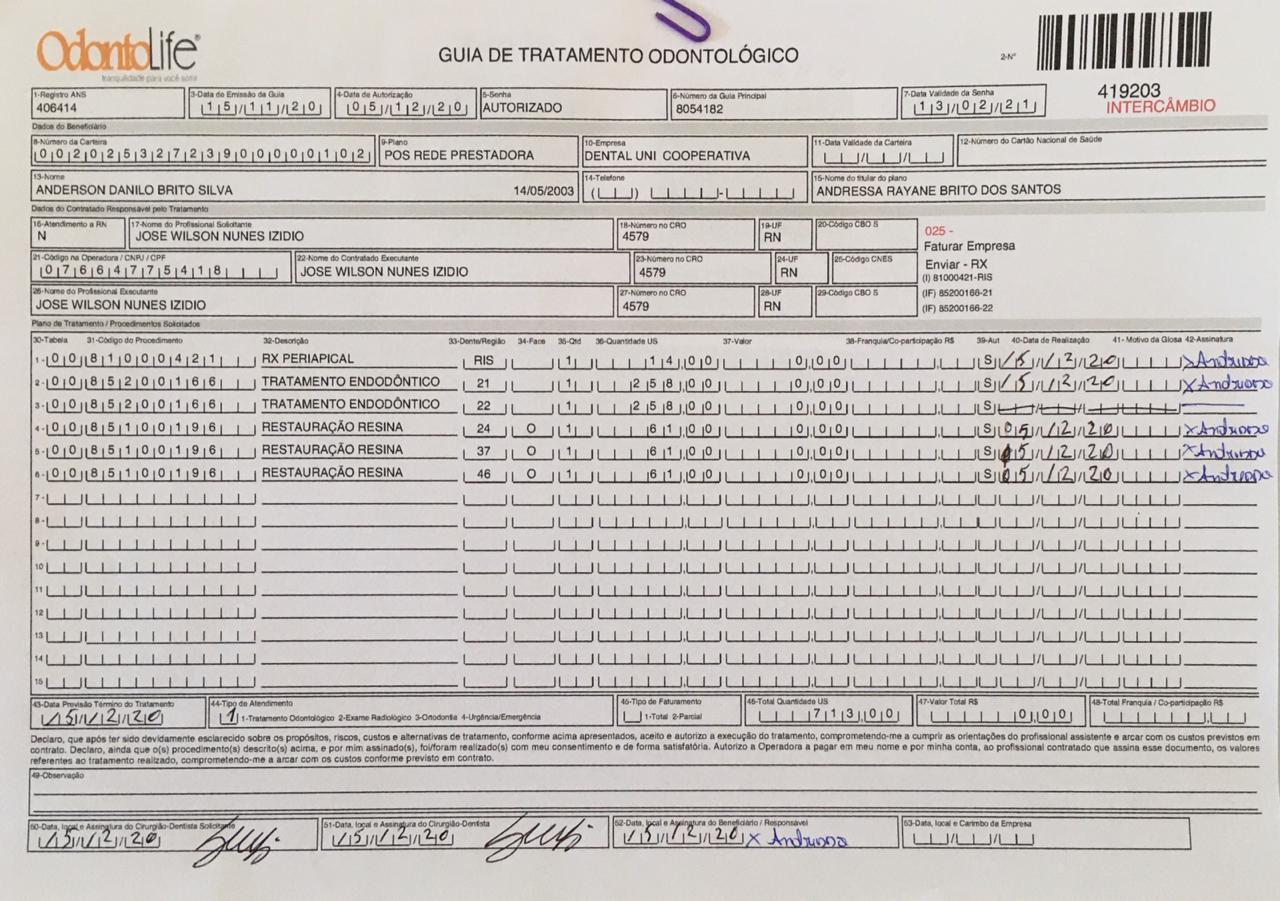 OdontoLife®
tranquilidade para você sorrir
GUIA DE TRATAMENTO ODONTOLÓGICO
2-Nº
419203
INTERCÂMBIO
1-Registro ANS 3-Data de Emissão da Guia 4-Data de Autorização 5-Senha 6-Número da Guia Principal 7-Data Validade da Senha
406414 15/11/20 05/12/20 AUTORIZADO 8054182 13/02/21
Dados do Beneficiário
8-Número da Carteira 9-Plano 10-Empresa 11-Data Validade da Carteira 12-Número do Cartão Nacional de Saúde
00202532723900000102 POS REDE PRESTADORA DENTAL UNI COOPERATIVA
13-Nome 14-Telefone 15-Nome do titular do plano
ANDERSON DANILO BRITO SILVA 14/05/2003 ANDRESSA RAYANE BRITO DOS SANTOS
Dados do Contratado Responsável pelo Tratamento
16-Atendimento a RN 17-Nome do Profissional Solicitante 18-Número no CRO 19-UF 20-Código CBO S
N JOSE WILSON NUNES IZIDIO 4579 RN
025 -
Faturar Empresa
Enviar - RX
(I) 81000421-RIS
(IF) 85200166-21
(IF) 85200166-22
21-Código na Operadora / CNPJ / CPF 22-Nome do Contratado Executante 23-Número no CRO 24-UF 25-Código CNES
07664775418 JOSE WILSON NUNES IZIDIO 4579 RN
26-Nome do Profissional Executante 27-Número no CRO 28-UF 29-Código CBO S
JOSE WILSON NUNES IZIDIO 4579 RN
Plano de Tratamento / Procedimentos Solicitados
30-Tabela 31-Código do Procedimento 32-Descrição 33-Dente/Região 34-Face 35-Qtd 36-Quantidade US 37-Valor 38-Franquia/Co-participação R$ 39-Aut 40-Data de Realização 41- Motivo da Glosa 42-Assinatura
1- 00 81000421 RX PERIAPICAL RIS 1 14,00 0,00 S 15/12/20 x Andressa
2- 00 85200166 TRATAMENTO ENDODÔNTICO 21 1 258,00 0,00 S 15/12/20 x Andressa
3- 00 85200166 TRATAMENTO ENDODÔNTICO 22 1 258,00 0,00 S
4- 00 85100196 RESTAURAÇÃO RESINA 24 O 1 61,00 0,00 S 05/12/20 x Andressa
5- 00 85100196 RESTAURAÇÃO RESINA 37 O 1 61,00 0,00 S 05/12/20 x Andressa
6- 00 85100196 RESTAURAÇÃO RESINA 46 O 1 61,00 0,00 S 05/12/20 x Andressa
7-
8-
9-
10
11
12
13
14
15
43-Data Previsão Término do Tratamento 44-Tipo de Atendimento 45-Tipo de Faturamento 46-Total Quantidade US 47-Valor Total R$ 48-Total Franquia / Co-participação R$
15/12/20 1 1-Tratamento Odontológico 2-Exame Radiológico 3-Ortodontia 4-Urgência/Emergência 1-Total 2-Parcial 713,00 0,00
Declaro, que após ter sido devidamente esclarecido sobre os propósitos, riscos, custos e alternativas de tratamento, conforme acima apresentados, aceito e autorizo a execução do tratamento, comprometendo-me a cumprir as orientações do profissional assistente e arcar com os custos previstos em
contrato. Declaro, ainda que o(s) procedimento(s) descrito(s) acima, e por mim assinado(s), foi/foram realizado(s) com meu consentimento e de forma satisfatória. Autorizo a Operadora a pagar em meu nome e por minha conta, ao profissional contratado que assina esse documento, os valores
referentes ao tratamento realizado, comprometendo-me a arcar com os custos conforme previsto em contrato.
49-Observação
50-Data, local e Assinatura do Cirurgião-Dentista Solicitante 51-Data, local e Assinatura do Cirurgião-Dentista 52-Data, local e Assinatura do Beneficiário / Responsável 53-Data, local e Carimbo da Empresa
15/12/20 15/12/20 15/12/20 x Andressa